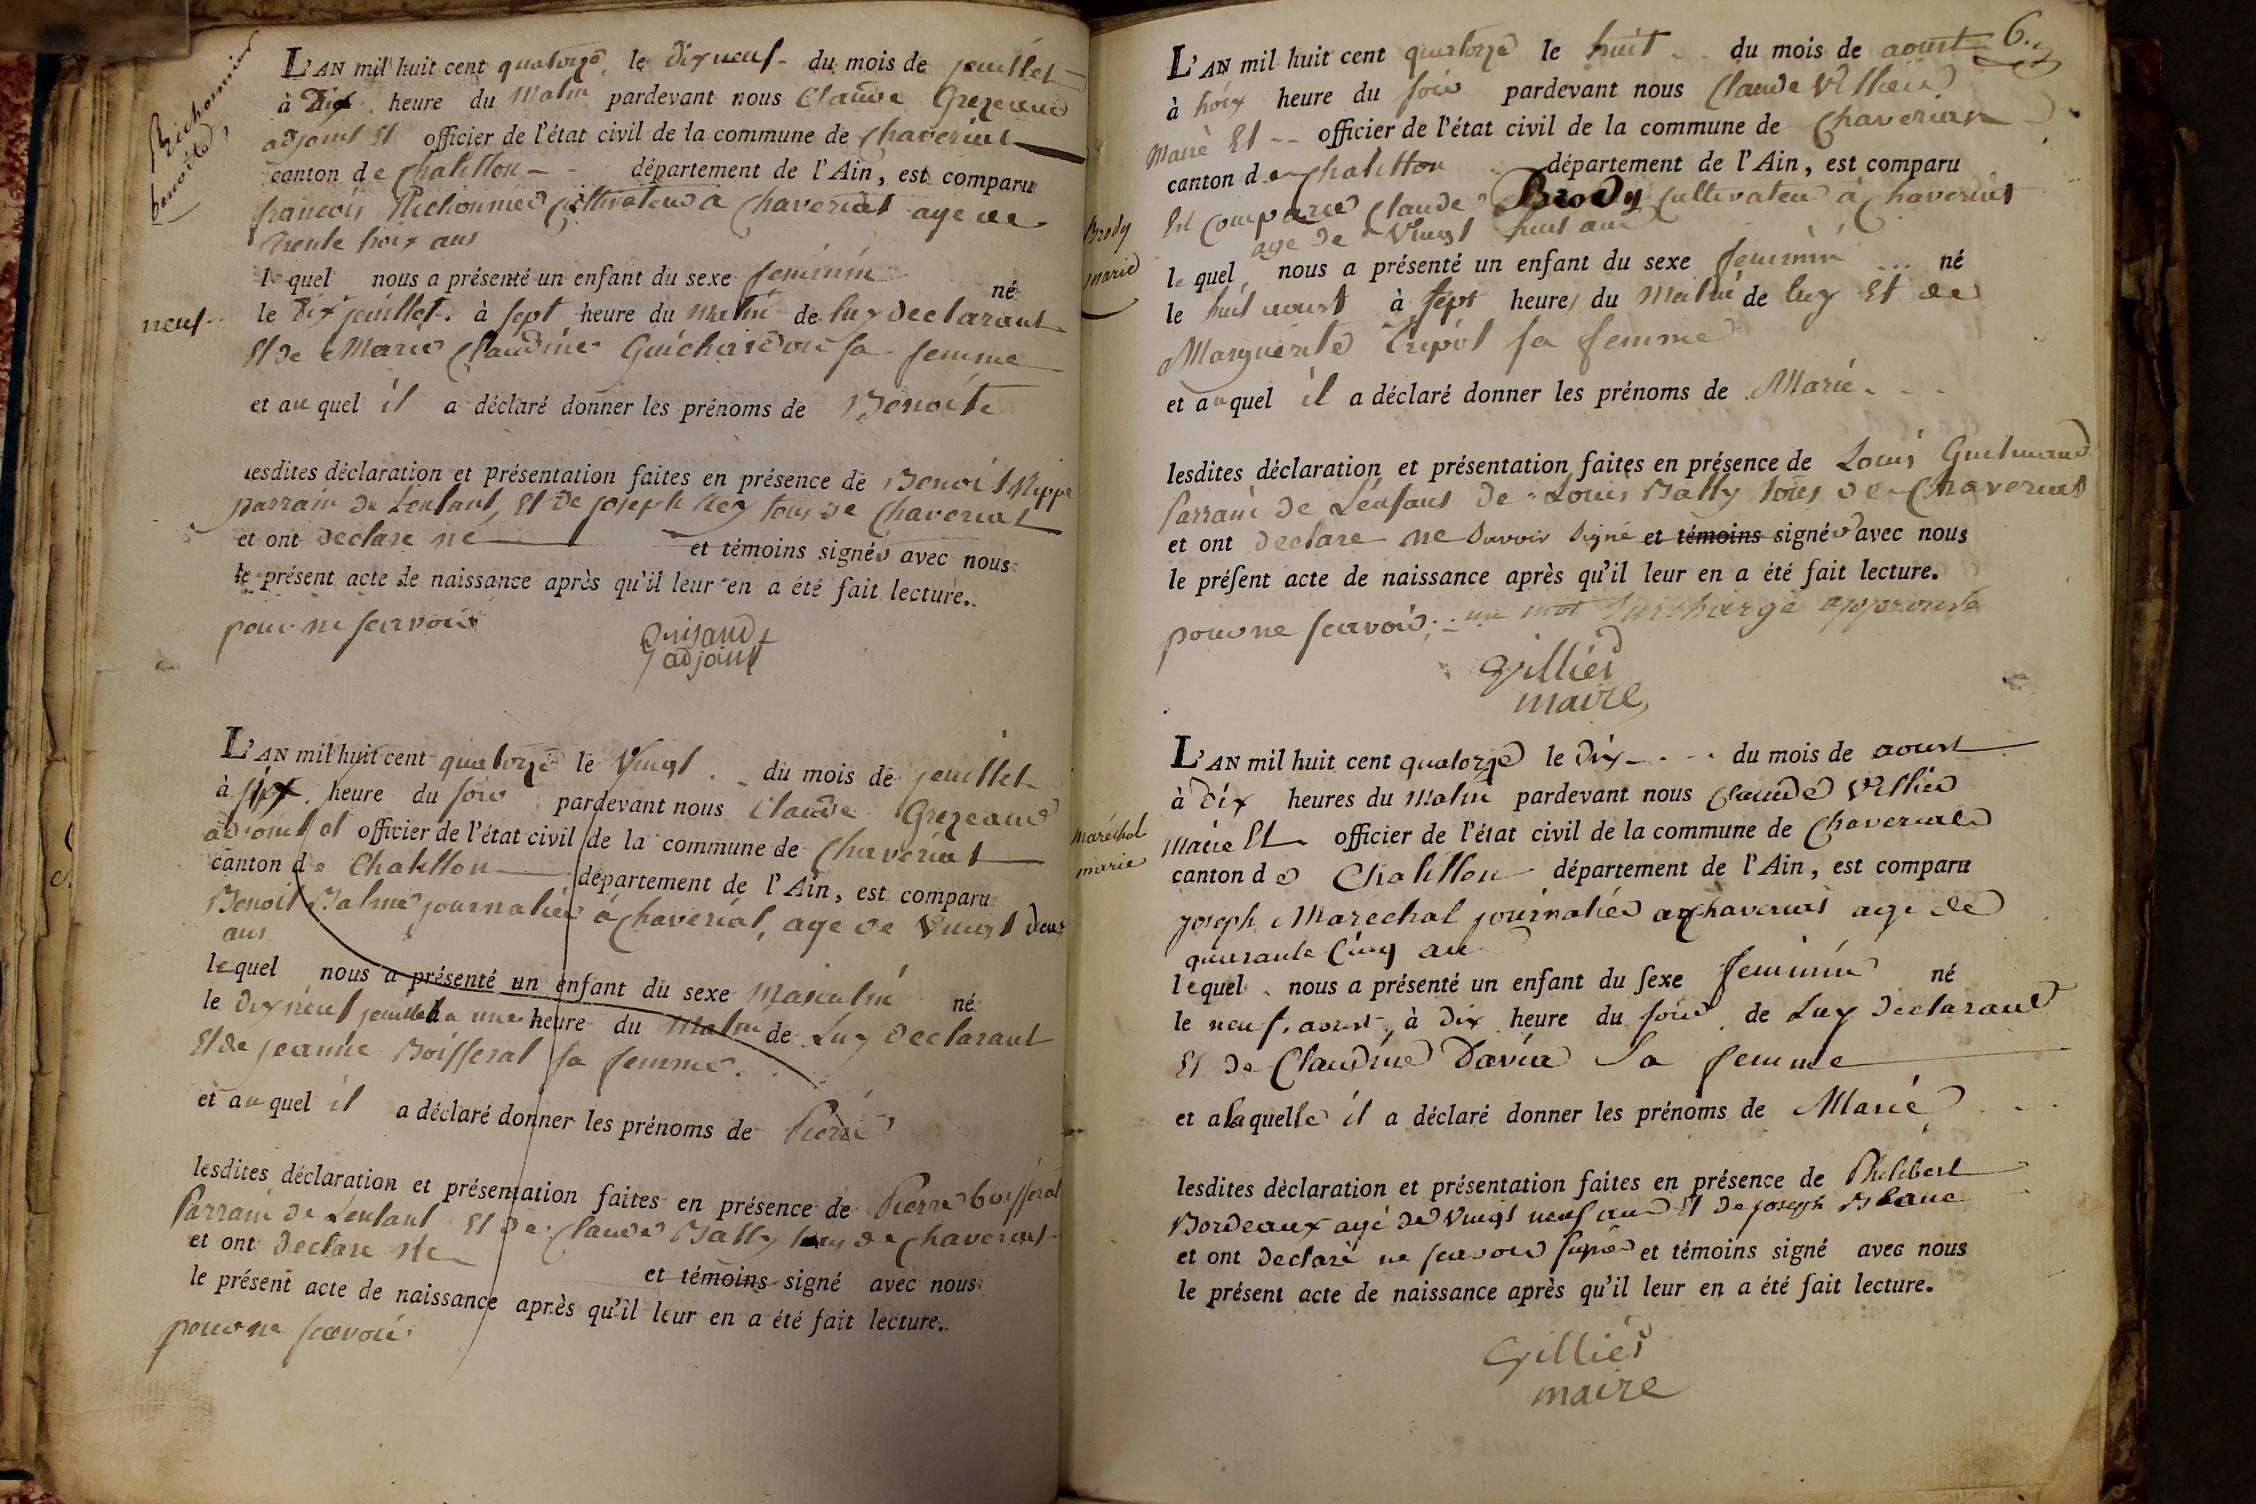 Richonnier
benoite,
L'AN mil huit cent quatorze le dix neuf du mois de jeuillet
à Dix heure du Matin pardevant nous Claude Grezeaud
adjoint Et officier de l'état civil de la commune de Chaveriat
canton de Chatillon département de l'Ain, est comparu
francois Richonnier Cultivateur a Chaveriat age de
trente troix ans
lequel nous a présenté un enfant du sexe feminin
né
neuf le Dix jeuillet à sept heure du matin de luy declarant
Et de Marie Claudine Guichardon sa femme
et au quel il a déclaré donner les prénoms de Benoite
lesdites déclaration et présentation faites en présence de Benoit
parrain de L'enfant, Et de joseph Rey tous de Chaveriat
et ont declare ne et témoins signés avec nous
le présent acte de naissance après qu'il leur en a été fait lecture.
pour ne scavoir
adjoint
L'AN mil huit cent quatorze le Vingt du mois de jeuillet
à heure du soir pardevant nous Claude Grezeaud
adjoint et officier de l'état civil de la commune de Chaveriat
canton de Chatillon département de l'Ain, est comparu
Benoit Balme journalier a Chaveriat, age de Vingt deux
ans
lequel nous a présenté un enfant du sexe Masculin né
le dix neuf jeuillet a une heure du Matin de Luy declarant
Et de jeanne Boisseral sa femme.
et au quel il a déclaré donner les prénoms de Pierre
lesdites déclaration et présentation faites en présence de Pierre boisseral
Parrain de L'enfant Et de Claude Bally tous de Chaveriat
et ont declare ne et témoins signé avec nous
le présent acte de naissance après qu'il leur en a été fait lecture.
pour ne scavoir
6.
Brody
marie
L'AN mil huit cent quatorze le huit du mois de aoust
à troix heure du soir pardevant nous Claude Villier
Maire Et officier de l'état civil de la commune de Chaveriat
canton de Chatillon département de l'Ain, est comparu
Est comparu Claude Brody Cultivateur à Chaveriat
age de Vingt huit ans
lequel nous a présenté un enfant du sexe feminin né
le huit aoust à sept heure du Matin de luy Et de
Marguerite Tripot sa femme
et auquel il a déclaré donner les prénoms de Marie
lesdites déclaration et présentation faites en présence de Louis
Parrain de L'enfans de Louis Bally tous de Chaveriat
et ont declare ne Savoir Signé et témoins signés avec nous
le présent acte de naissance après qu'il leur en a été fait lecture.
pour ne scavoir un mot surchargé approuvé
Villier
maire,
Maréchal
marie
L'AN mil huit cent quatorze le dix du mois de aoust
à Dix heures du Matin pardevant nous Claude Villier
Maire Et officier de l'état civil de la commune de Chaveriat
canton de Chatillon département de l'Ain, est comparu
joseph Marechal journalier a Chaveriat age de
quarante Cinq an
lequel nous a présenté un enfant du sexe feminin né
le neuf aoust à dix heure du soir de Luy declarant
Et de Claudine Davia Sa femme
et a laquelle il a déclaré donner les prénoms de Marie
lesdites déclaration et présentation faites en présence de Philibert
Bordeaux agé de Vingt neuf an Et de joseph Blanc
et ont declaré ne scavoir signer et témoins signé avec nous
le présent acte de naissance après qu'il leur en a été fait lecture.
Villier
maire